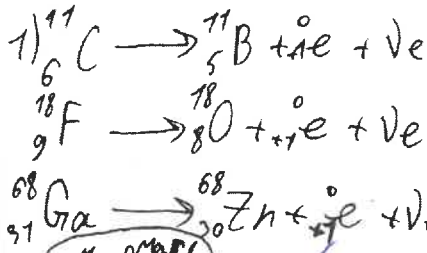 1) ¹¹₆C ⟶ ¹¹₅B + ⁰₊₁e + νe
¹⁸₉F ⟶ ¹⁸₈O + ⁰₊₁e + νe
⁶⁸₃₁Ga ⟶ ⁶⁸₃₀Zn + ⁰₊₁e + ν